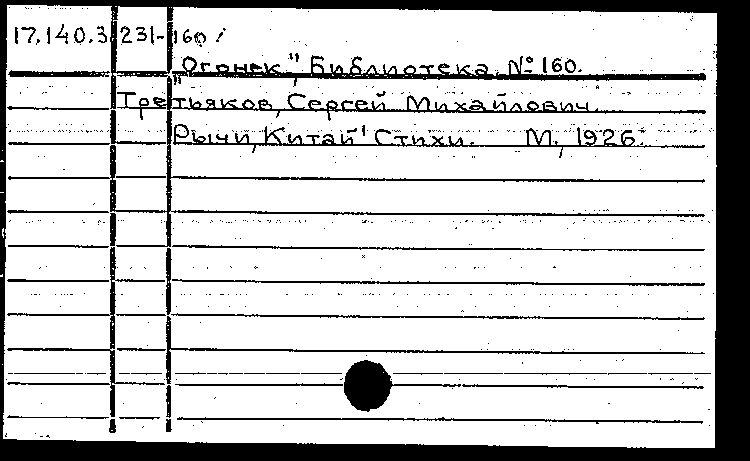 17.140.3 231-160/
"Огонек", Библиотека. № 160.
Третьяков, Сергей Михайлович.
Рычи, Китай! Стихи. М., 1926.